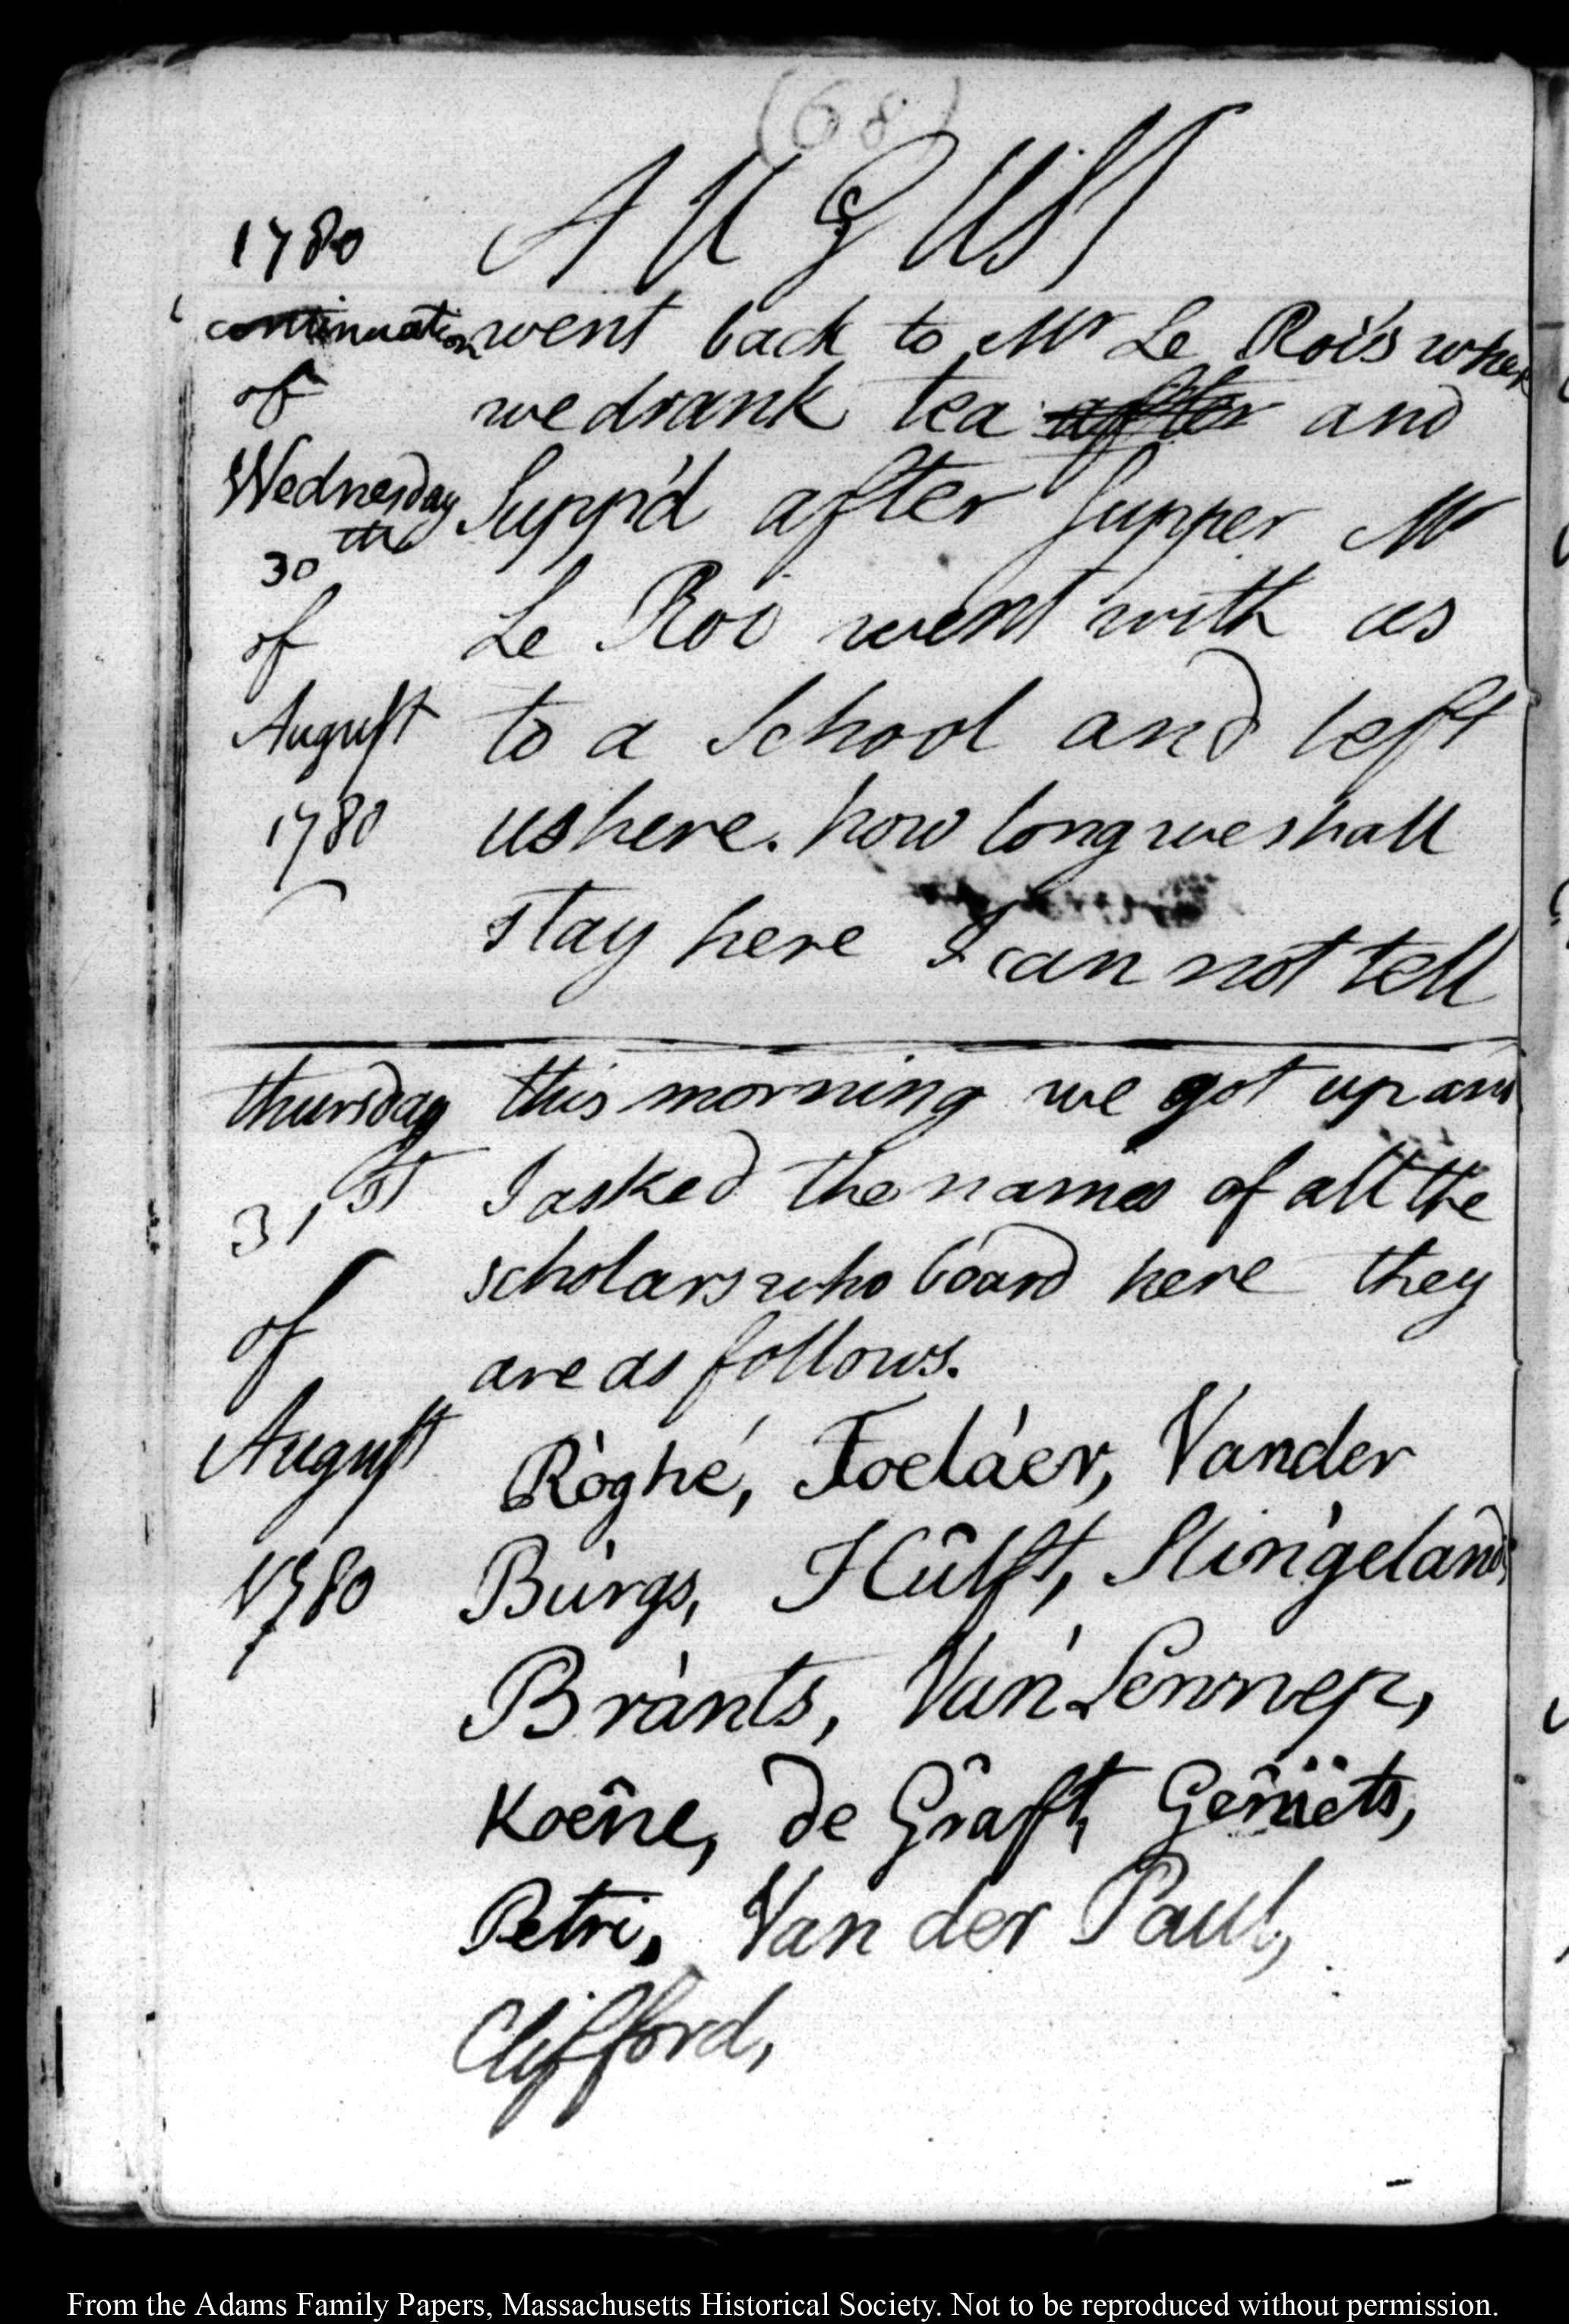 (68)
1780 AUGUST
continuation went back to Mr Le Roi's where
of we drank tea after and
Wednesday Supp'd after Supper Mr
30th Le Roi went with us
of to a School and left
August us here. how long we shall
1780 stay here I can not tell
thursday this morning we got up and
31st I asked the names of all the
of scholars who board here they
are as follows.
August Ròghé, Toeláer, Vander
1780 Bùrgs, Hûlft, Slingeland,
Brànts, Van Lennep,
Koêne, de Grâft, Gêrnëts,
Petri, Van der Paul,
Clifford,
From the Adams Family Papers, Massachusetts Historical Society. Not to be reproduced without permission.